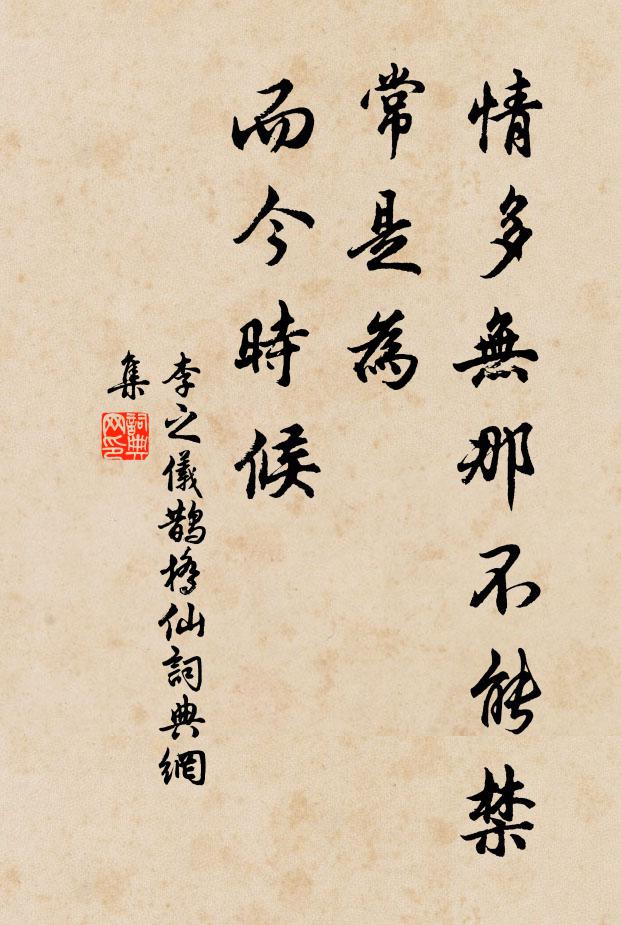 情多無那不能禁
常是為
而今時候
李之儀鵲橋仙詞典網
集
詞典网印